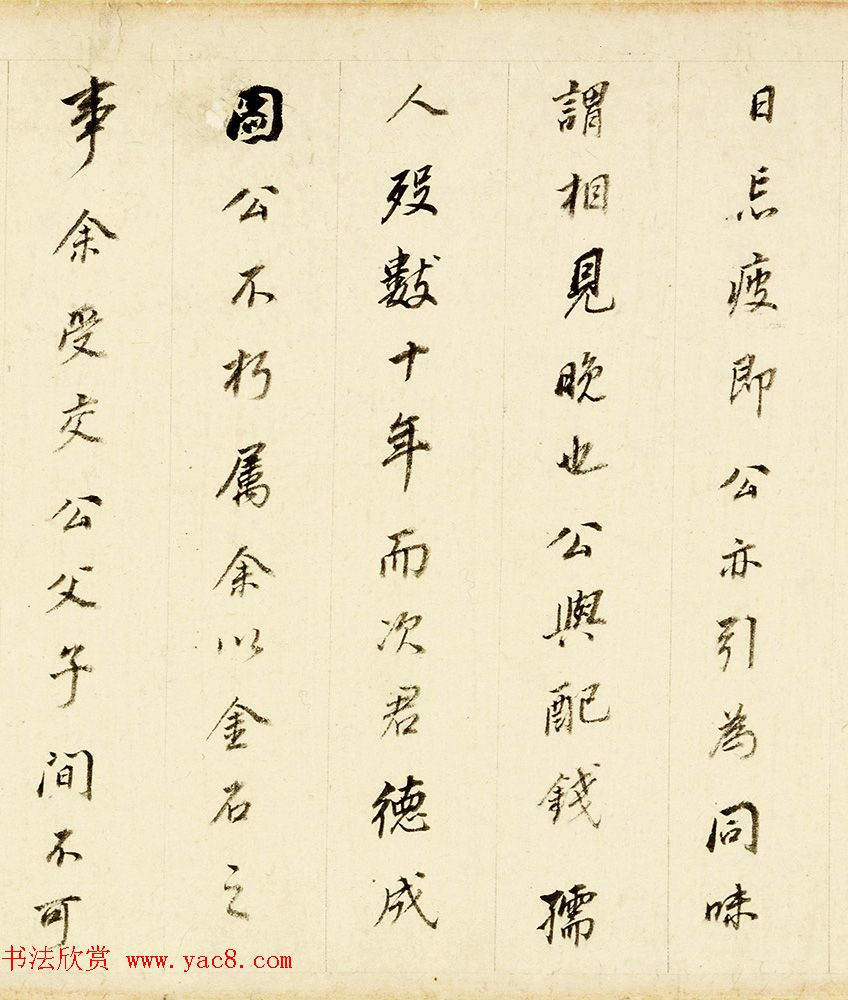 日忘疲即公亦引為同味
謂相見晚也公與配錢孺
人歿數十年而次君德成
圖公不朽属余以金石之
事余受交公父子间不可
书法欣赏 www.yac8.com